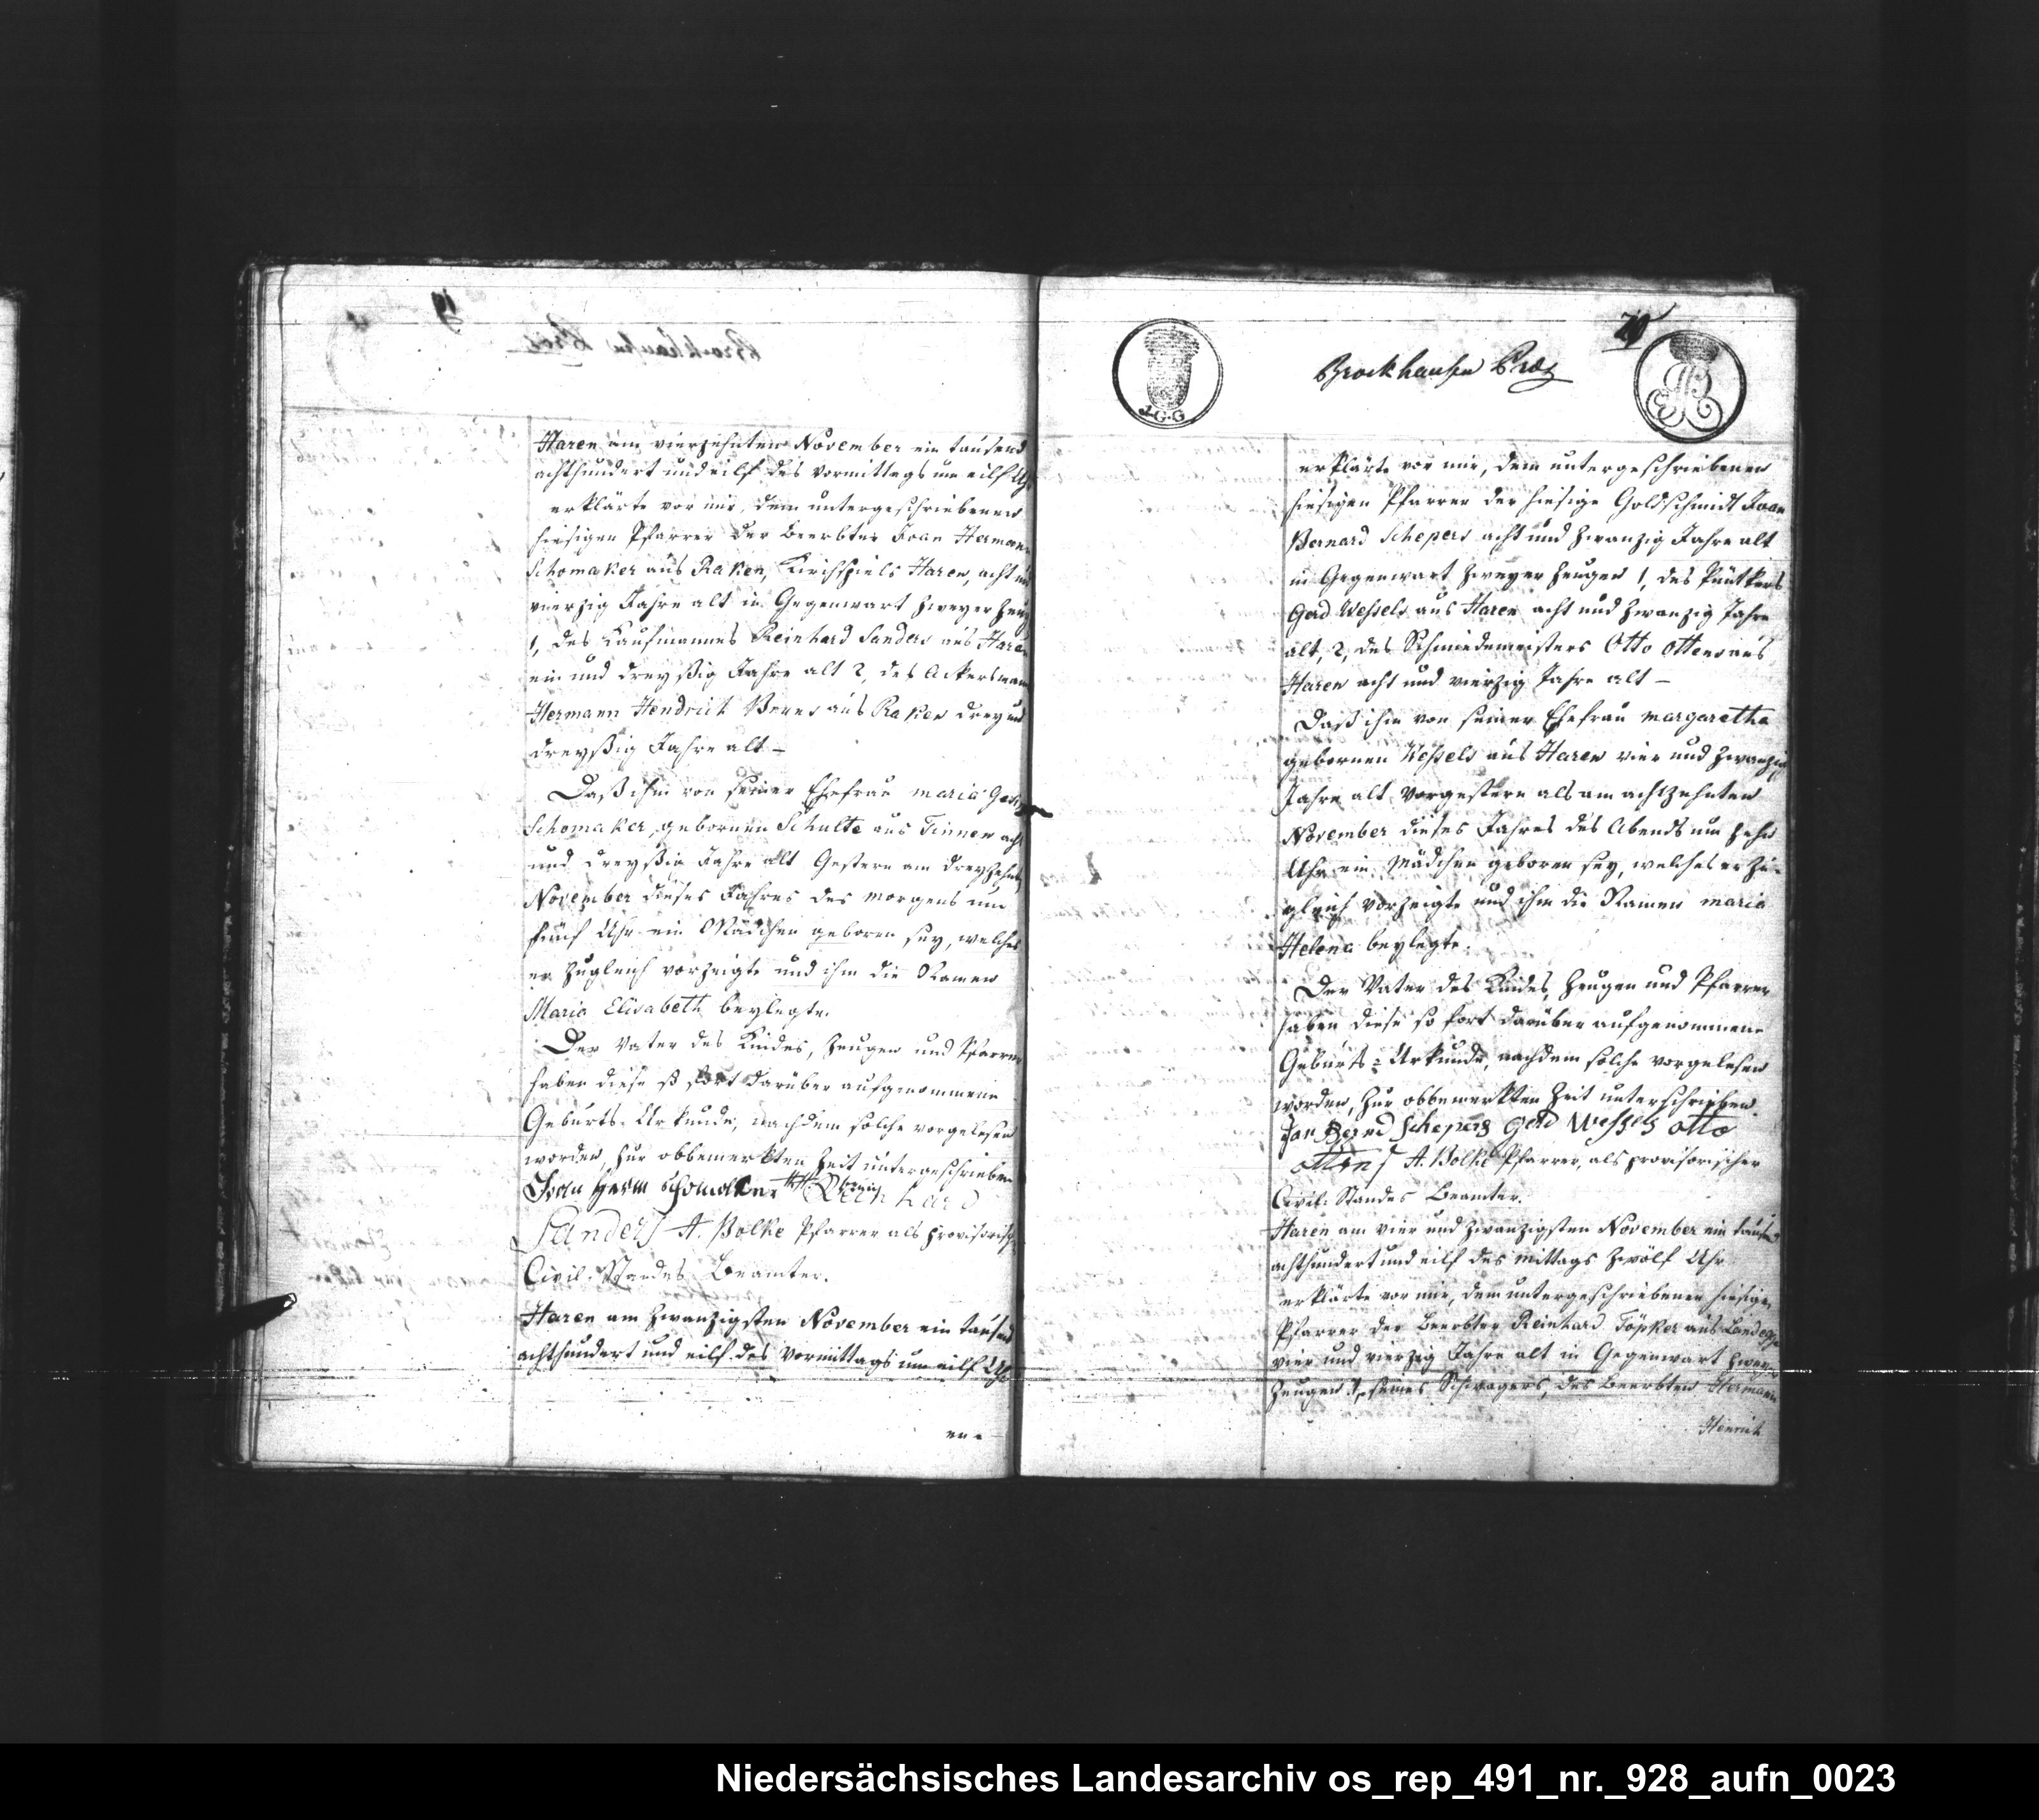 Haren am vierzehnten November ein tausend
achthundert und eilf des vormittags um eilf Uhr
erklärte vor mir, dem untergeschriebenen
hiesigen Pfarrer der Beerbter Joan Hermann
Schomaker aus Raken, Kirchspiels Haren, acht und
vierzig Jahre alt in Gegenwart zweyer Zeug
1, des Kaufmannes Reinhard Sanders aus Haren
ein und dreyßig Jahre alt 2, des Ackersmann
Hermann Hendrich aus Raken drey und
dreyßig Jahre alt –
Daß ihm von seiner Ehefrau maria
Schomaker, gebornen Schulte aus Tinnen acht
und dreyßig Jahre alt Gestern am dreyzehnten
November dieses Jahres des morgens um
fünf Uhr ein Mädchen geboren sey, welches
er zugleich vorzeigte und ihm die Namen
Maria Elisabeth beylegte.
Der Vater des Kindes, Zeugen und Pfarrer
haben diese so fort darüber aufgenommene
Geburts-Urkunde, nachdem solche vorgelesen
worden, zur obbemerkten Zeit untergeschrieben
Joan Herm Schomaker Reinhard
Sanders A. Bolke Pfarrer als provisorischer
Civil-Standes Beamter.
Haren am zwanzigsten November ein tausend
achthundert und eilf des vormittags um eilf Uhr
er-
20
J.G.G
Brockhausen
erklärte vor mir, dem untergeschriebenen
hiesigen Pfarrer der hiesige Goldschmidt Joan
Bernard Schepers acht und zwanzig Jahre alt
in Gegenwart zweyer Zeugen 1, des
Gerd Wessels aus Haren acht und zwanzig Jahre
alt, 2, des Schmiedemeisters Otto Ottens aus
Haren acht und vierzig Jahre alt –
Daß ihm von seiner Ehefrau margaretha
gebornen Wessels aus Haren vier und zwanzig
Jahre alt vorgestern als am achtzehnten
November dieses Jahres des Abends um zehn
Uhr ein Mädchen geboren sey, welches er zu-
gleich vorzeigte und ihm die Namen maria
Helena beylegte.
Der Vater des Kindes, Zeugen und Pfarrer
haben diese so fort darüber aufgenommene
Geburts-Urkunde, nachdem solche vorgelesen
worden, zur obbemerkten Zeit unterschrieben.
Jan Bernd Schepers Gerd Wessels otto
ottens A. Bolke Pfarrer, als provisorischer
Civil-Standes Beamter.
Haren am vier und zwanzigsten November ein tausend
achthundert und eilf des mittags zwölf Uhr
erklärte vor mir, dem untergeschriebenen hiesigen
Pfarrer der Beerbter Reinhard Töpker aus Landegge
vier und vierzig Jahre alt in Gegenwart zweyer
Zeugen 1, seines Schwagers, des Beerbten Hermann
Henrich
Niedersächsisches Landesarchiv os_rep_491_nr._928_aufn_0023